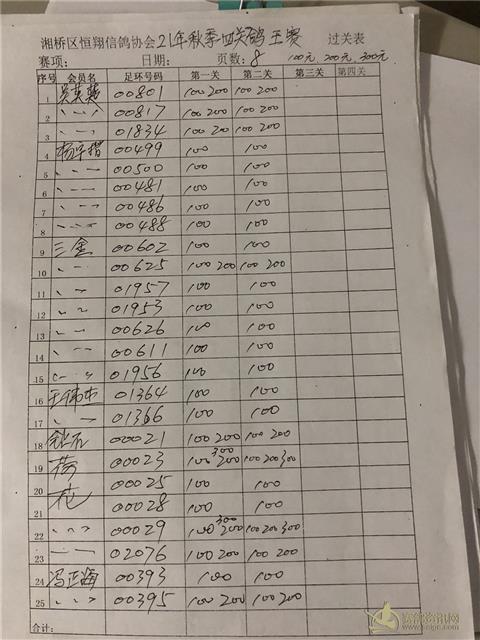 湘桥区恒翔信鸽协会21年秋季四关鸽王赛 过关表
赛项: 日期: 页数: 8 100元 200元 300元
序号 会员名 足环号码 第一关 第二关 第三关 第四关
1 吴英燕 00801 100 200 100 200
2 〃 00817 100 200 100 200
3 〃 01834 100 200 100 200
4 00499 100 100
5 〃 00500 100 100
6 〃 00481 100 100
7 〃 00486 100 100
8 〃 00488 100 100
9 三金 00602 100 100
10 〃 00625 100 200 100 200
11 〃 01957 100 100
12 〃 01953 100 100
13 〃 00626 100 100
14 〃 00611 100 100
15 〃 01956 100 100
16 王伟杰 01364 100 100
17 〃 01366 100 100
18 钻石 00021 100 200 100 200
19 荷 00023 100 200 300 100 200 300
20 花 00025 100 100
21 00028 100 100
22 〃 00029 100 200 300 100 200 300
23 〃 02076 100 200 100 200
24 冯正海 00393 100 100
25 〃 00395 100 200 100 200
合计: